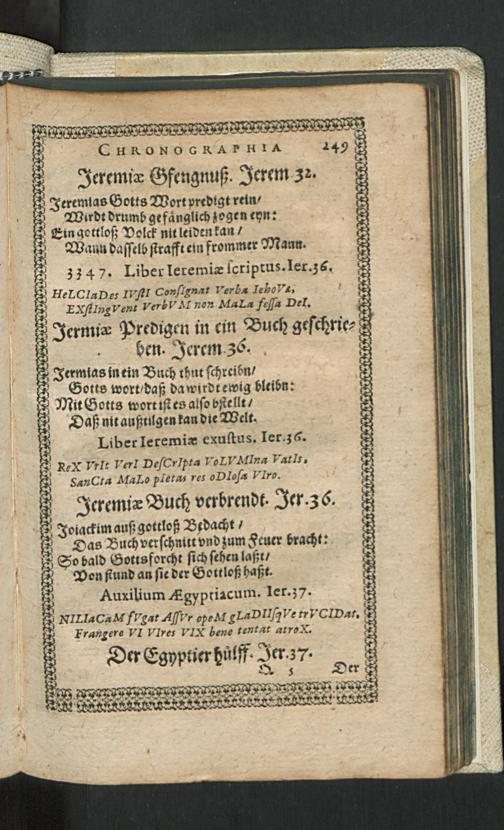 CHRONOGRAPHIA 249
Jeremiæ Gfengnuß. Jerem 32.
Jeremias Gotts Wort predigt rein/
Wirdt drumb gefänglich zogen eyn:
Ein gottloß Volck nit leiden kan/
Wann dasselb strafft ein frommer Mann.
3347. Liber Ieremiæ scriptus. Ier. 36.
HeLCIaDes IVstI ConsIgnat Verba IehoVæ,
EXstIngVent VerbVM non MaLa fessa DeI.
Jermiæ Predigen in ein Buch geschrie-
ben. Jerem. 36.
Jermias in ein Buch thut schreibn/
Gotts wort/ daß da wirdt ewig bleibn:
Mit Gotts wort ist es also bstellt/
Daß nit außtilgen kan die Welt.
Liber Ieremiæ exustus. Ier. 36.
ReX VrIt VerI DesCrIpta VoLVMIna VatIs,
SanCta MaLo pIetas res oDIosa VIro.
Jeremiæ Buch verbrendt. Jer. 36.
Joiackim auß gottloß Bedacht/
Das Buch verschnitt vnd zum Feuer bracht:
So bald Gottsforcht sich sehen laßt/
Von stund an sie der Gottloß haßt.
Auxilium Ægyptiacum. Ier. 37.
NILIaCaM fVgat AssVr opeM gLaDIIsqVe trVCIDat,
Frangere VI VIres VIX bene tentat atroX.
Der Egyptier hülff. Jer. 37.
Q 5 Der